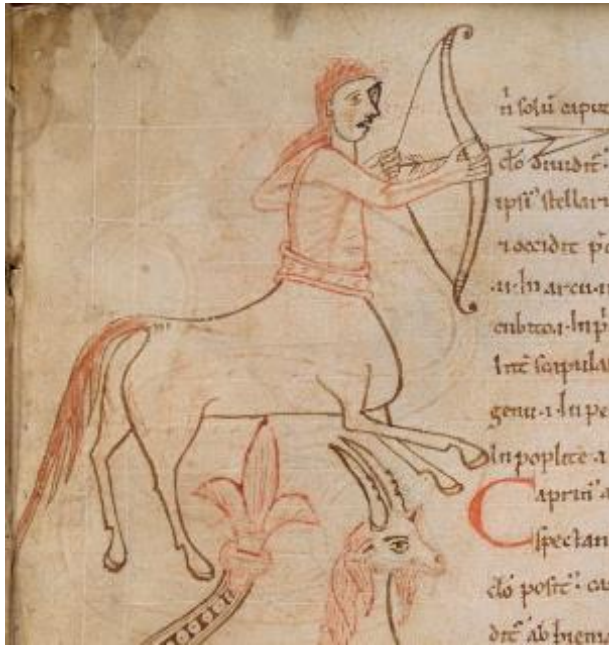 n̄ solū capit
clo diuidit.
ipsi' stellar
⁊ occidit p
.ii. In arcu .i
cubito .i. In p
Int scapula
genu .i. In pe
In poplite .i
Caprin'
spectan
clo posit': ca
dit ab hiema